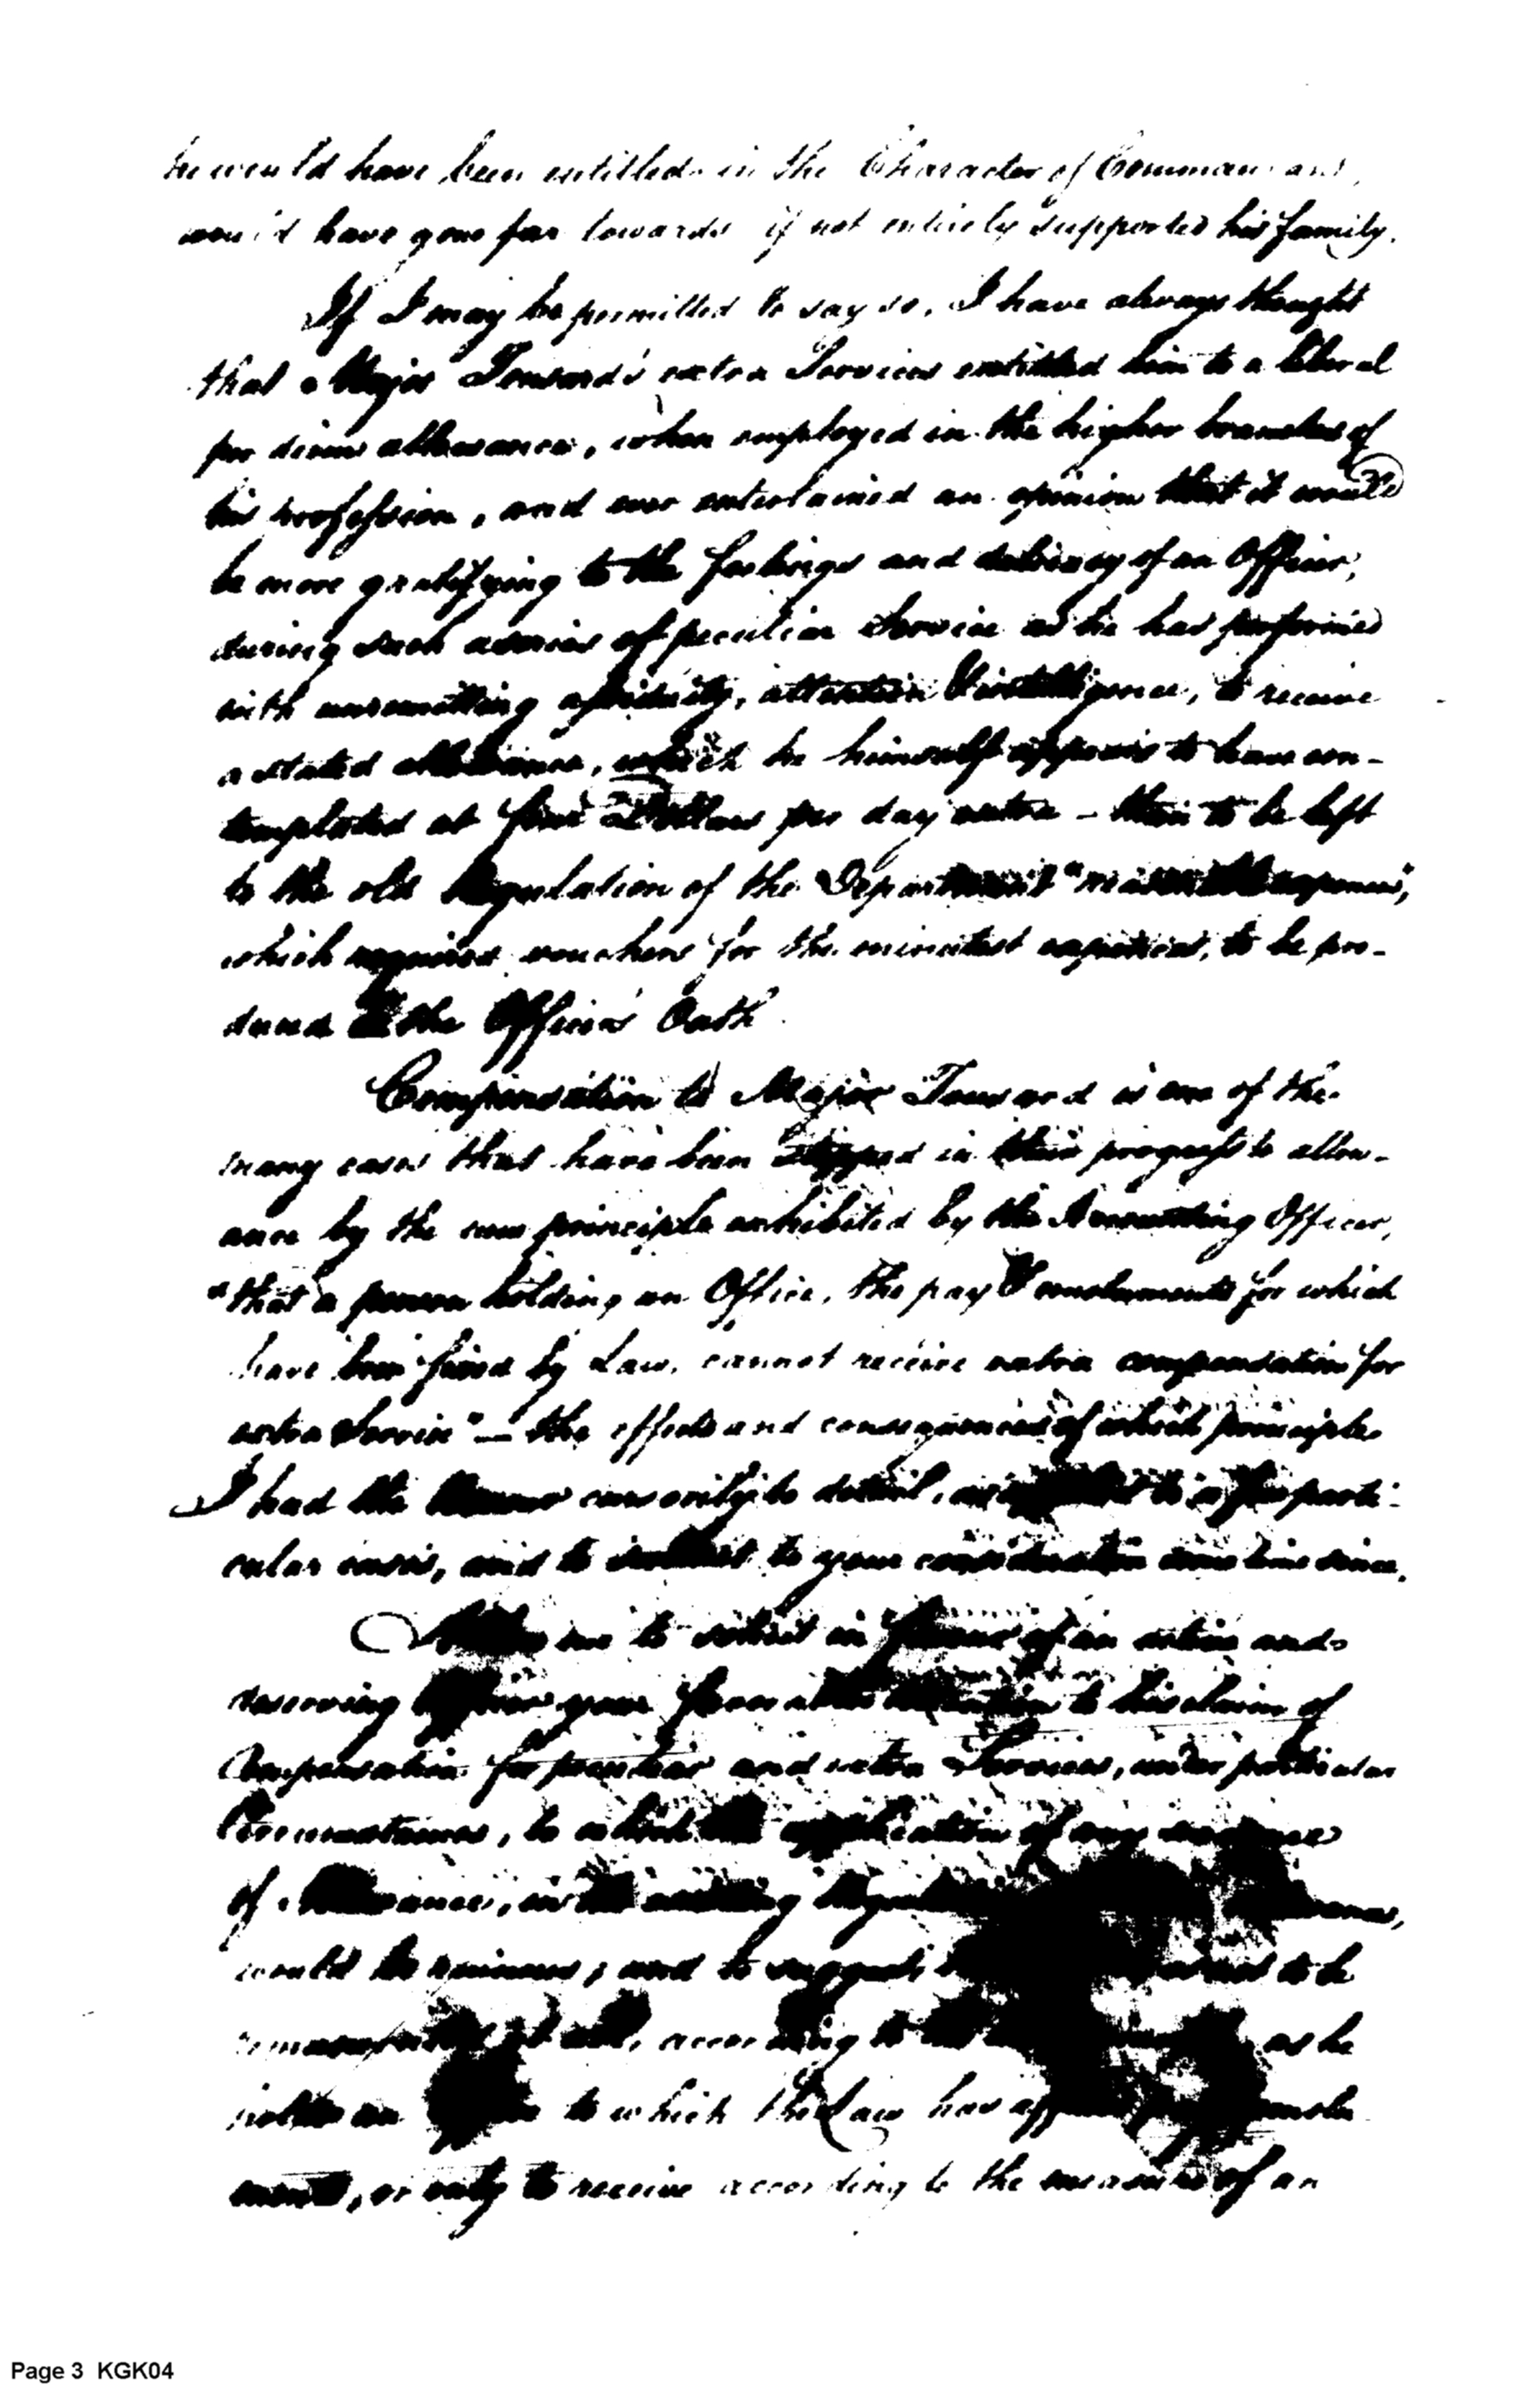 he would have been entitled in the Character of Commandant,
would have gone far towards if not entirely supported his family.
If I may be permitted to say so, I have always thought
that Major Tousard's extra Services entitled him to a liberal
per diem allowance, when employed in the higher branches of
his profession, and ever entertained an opinion that it would
be more gratifying to the feelings and delicacy of an Officer,
during such a series of peculiar Service as he has performed
with unremitting assiduity, attention & intelligence, to receive
a stated allowance, which he himself appears to have con-
templated at five Dollars per day extra - than to be left
to the old Regulation of the Department "
which required vouchers for the minutest expences, to be pro-
duced the Officer's Oath.
Compensation to Major Tousard is one of the
many cases that have been stopped in their progress to allow-
ance by the new principle exhibited by the Accounting Officer,
"that a person holding an Office, the pay & emoluments for which
have been fixed by Law, cannot receive extra compensation for
extra Service" - the effects and consequences of which principle
I had the honor cursorily to detail, as to a few parti-
cular cases, and to submit to your consideration some time since.
me to solicit in favour of an active and
deserving Officer your favorable attention to his claim of
Compensation for peculiar and extra Services, under particular
Circumstances, to which the application of any
of Allowance, in the existing
would be ; and to suggest to be
at all, according to as he
holds an Office to which the Law has
ments, or only to receive according to the measure of an
Page 3 KGK04